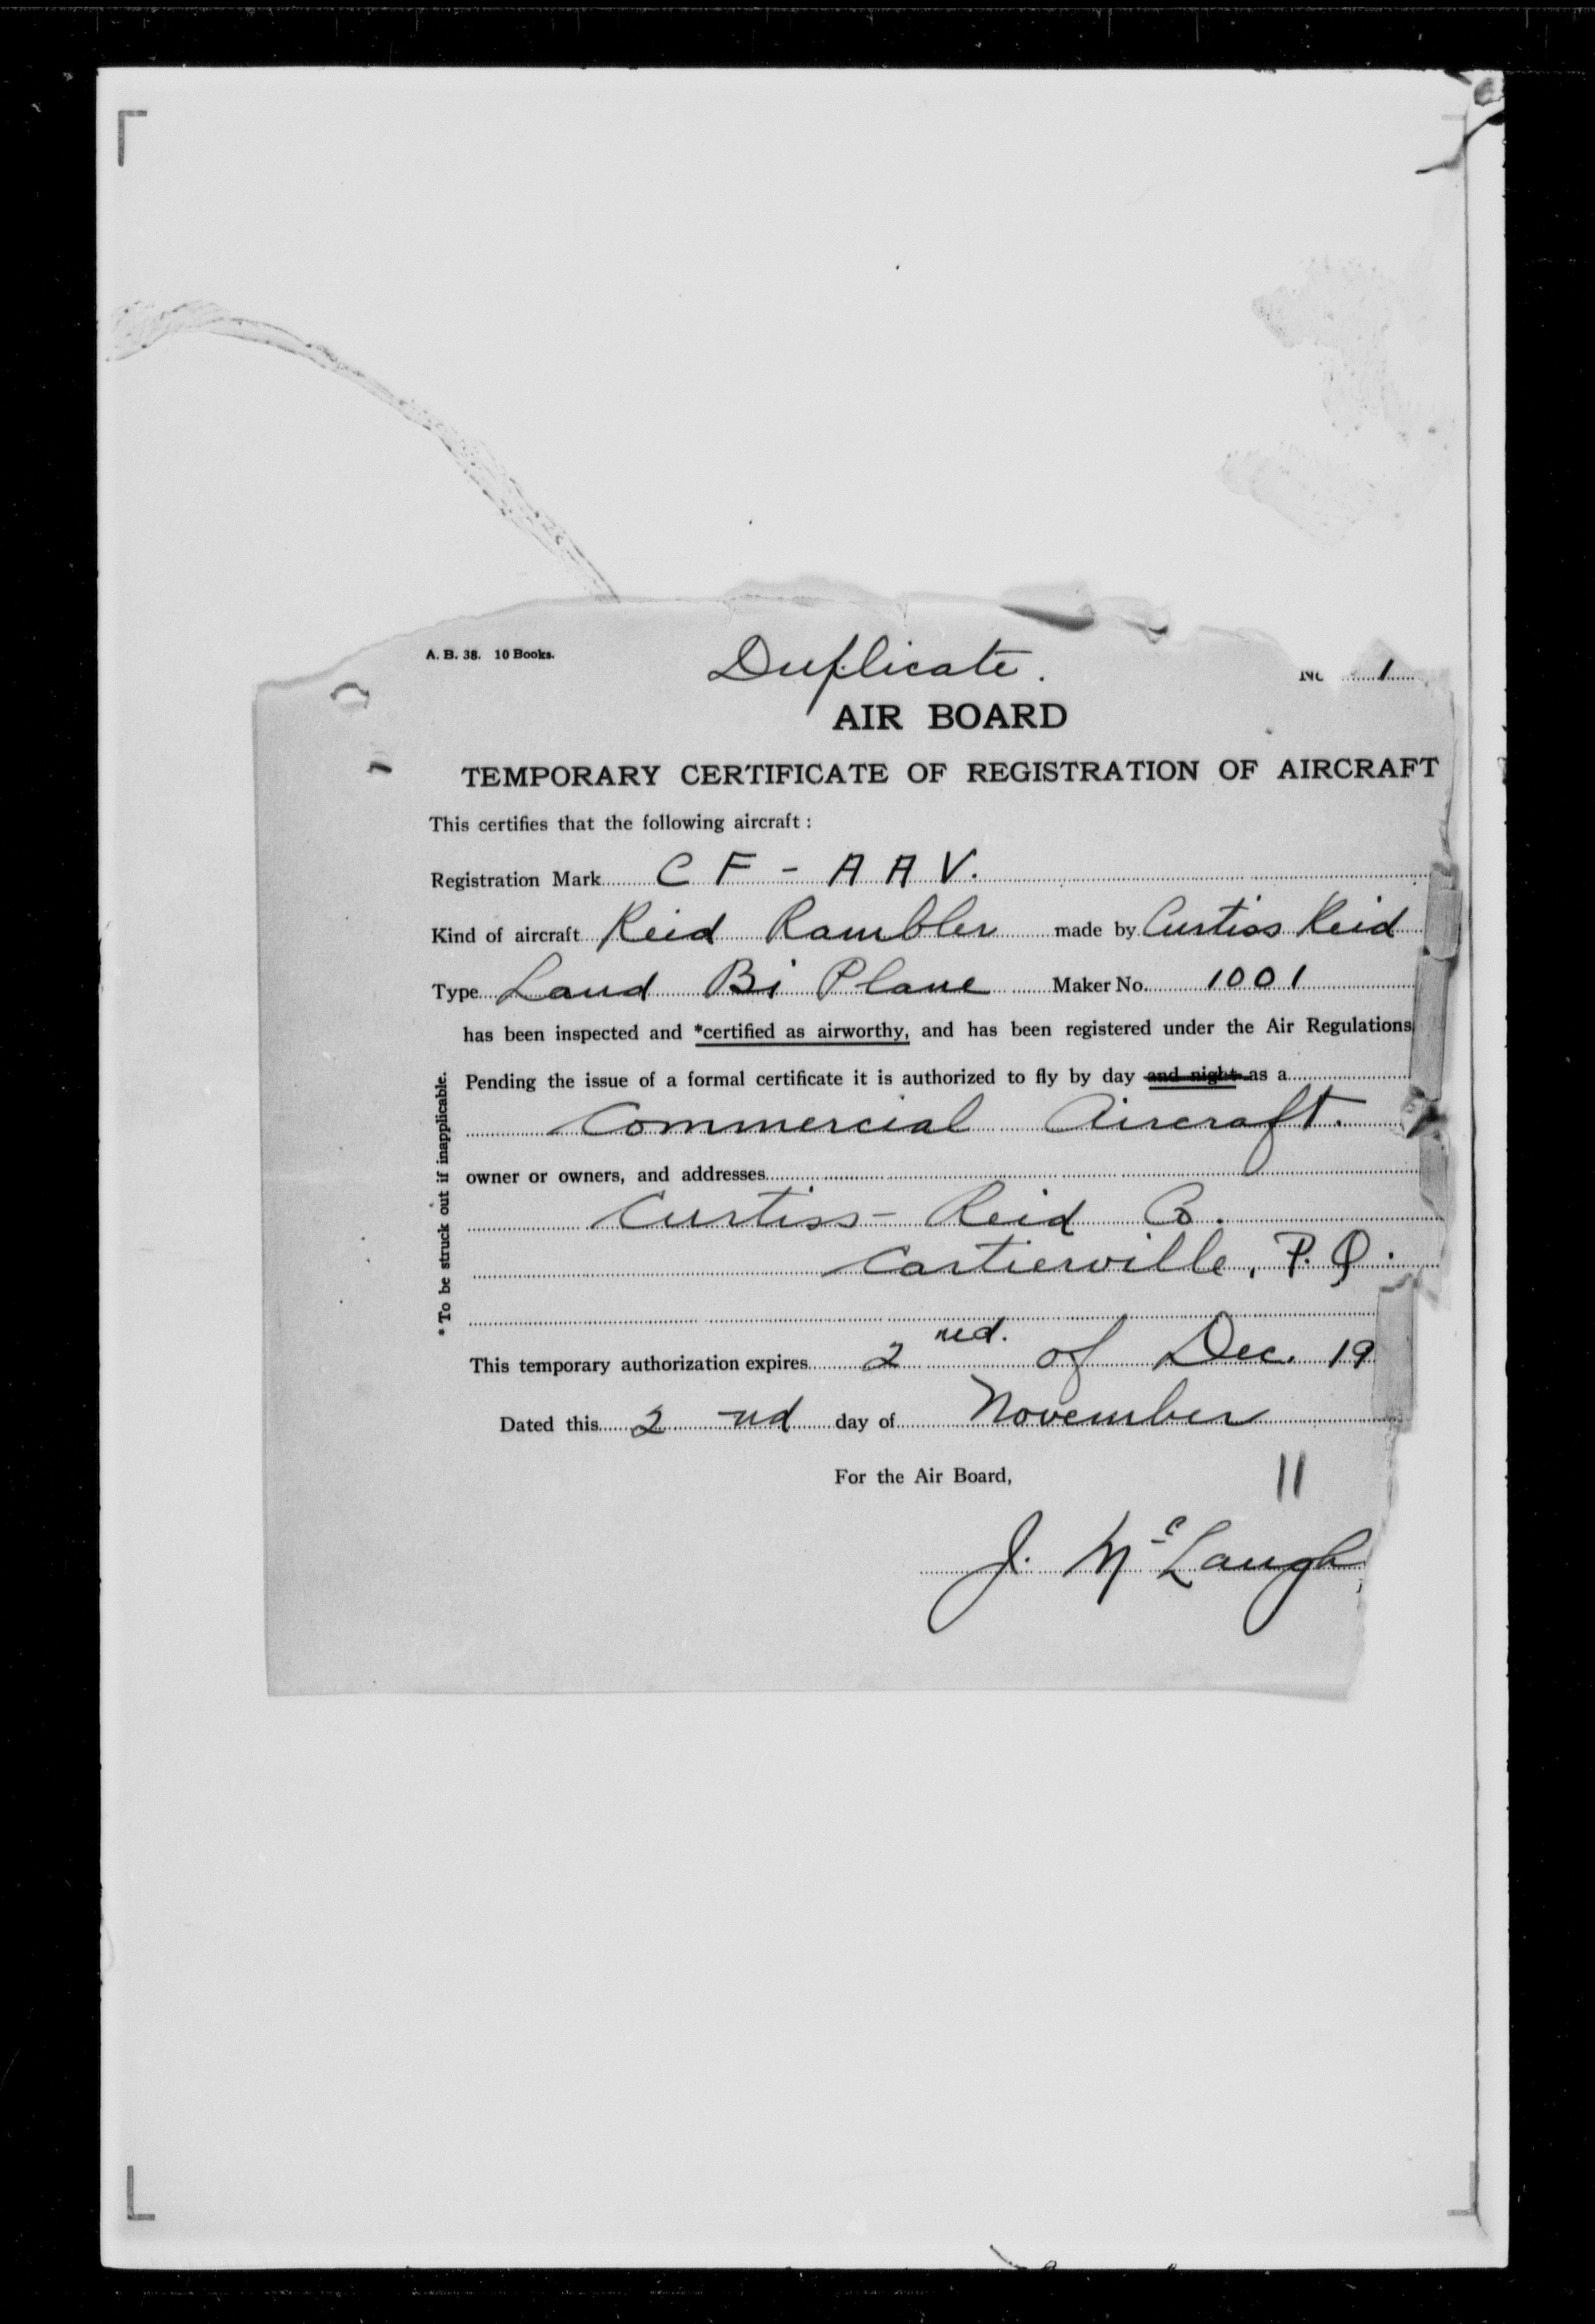 A. B. 38. 10 Books.
Duplicate.
No 1
AIR BOARD
TEMPORARY CERTIFICATE OF REGISTRATION OF AIRCRAFT
This certifies that the following aircraft :
Registration Mark C F - A A V.
Kind of aircraft Reid Rambler made by Curtiss Reid
Type Land Bi Plane Maker No. 1001
has been inspected and *certified as airworthy, and has been registered under the Air Regulations
Pending the issue of a formal certificate it is authorized to fly by day and night as a
Commercial Aircraft.
owner or owners, and addresses
Curtiss - Reid Co.
Cartierville, P.Q.
* To be struck out if inapplicable.
This temporary authorization expires 2nd. of Dec. 19
Dated this 2nd day of November
For the Air Board,
11
J. McLaugh